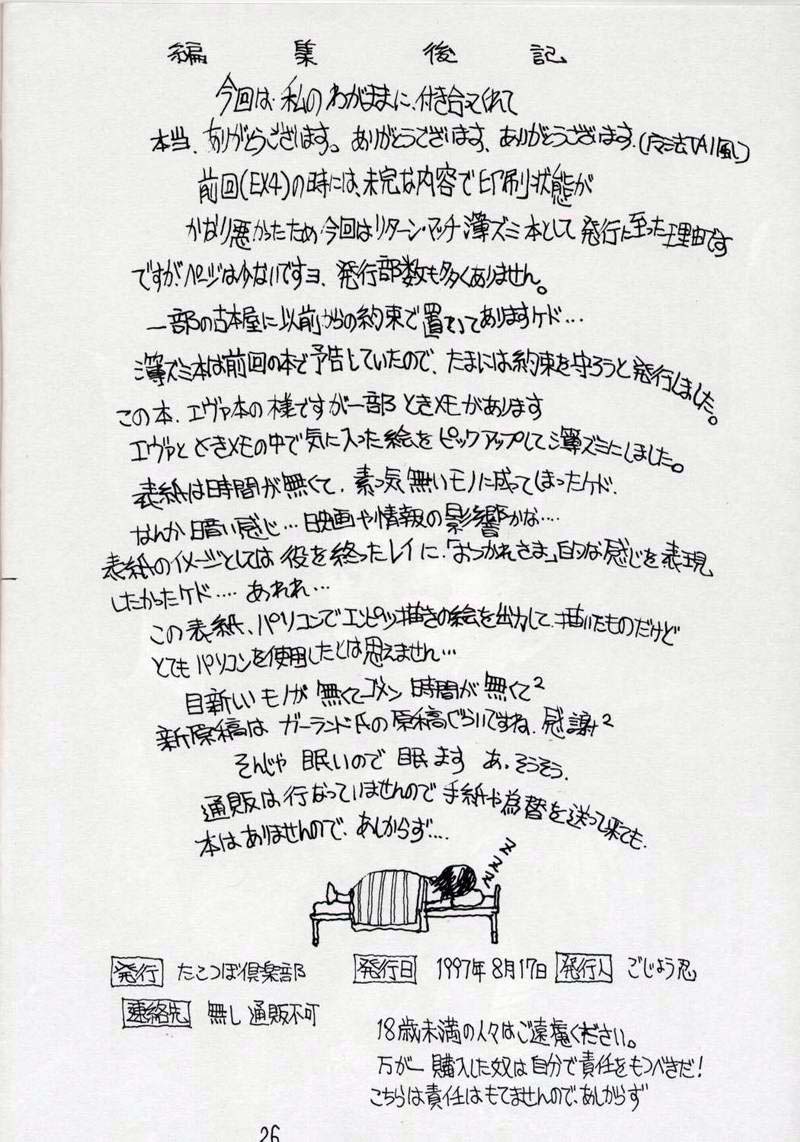 編集後記
今回は、私のわがままに、付き合ってくれて
本当、ありがとうございます。ありがとうございます、ありがとうございます。
前回(EX4)の時には、未完な内容で印刷状態が
かなり悪かったため今回はリターン・マッチ 薄ズミ本として発行に至った理由です
ですが、ページは少ないですヨ、発行部数も多くありません。
一部の古本屋に以前からの約束で置いてありますケド…
薄ズミ本は前回の本で予告していたので、たまには約束を守ろうと発行しました。
この本、エヴァ本の様ですが一部ときメモがあります
エヴァとときメモの中で気に入った絵をピックアップして薄ズミにしました。
表紙は時間が無くて、素っ気無いモノに成ってしまったケド、
なんか暗い感じ…映画や情報の影響かな…
表紙のイメージとしては役を終ったレイに、「おつかれさま」的な感じを表現
したかったケド…あれれ…
この表紙、パソコンでエンピツ描きの絵を出力して、描いたものだけど
とてもパソコンを使用したとは思えません…
目新しいモノが無くてゴメン 時間が無くて²
新原稿はガーランド氏の原稿ぐらいですね、感謝²
そんじゃ 眠いので 眠ます あ、そうそう、
通販は行なっていませんので手紙や為替を送って来ても、
本はありませんので、あしからず…
ZZZZ
発行 たこつぼ倶楽部 発行日 1997年8月17日 発行人 ごじょう忍
連絡先 無し 通販不可
18歳未満の人々はご遠慮ください。
万が一購入した奴は自分で責任をもつべきだ!
こちらは責任はもてませんので、あしからず
26